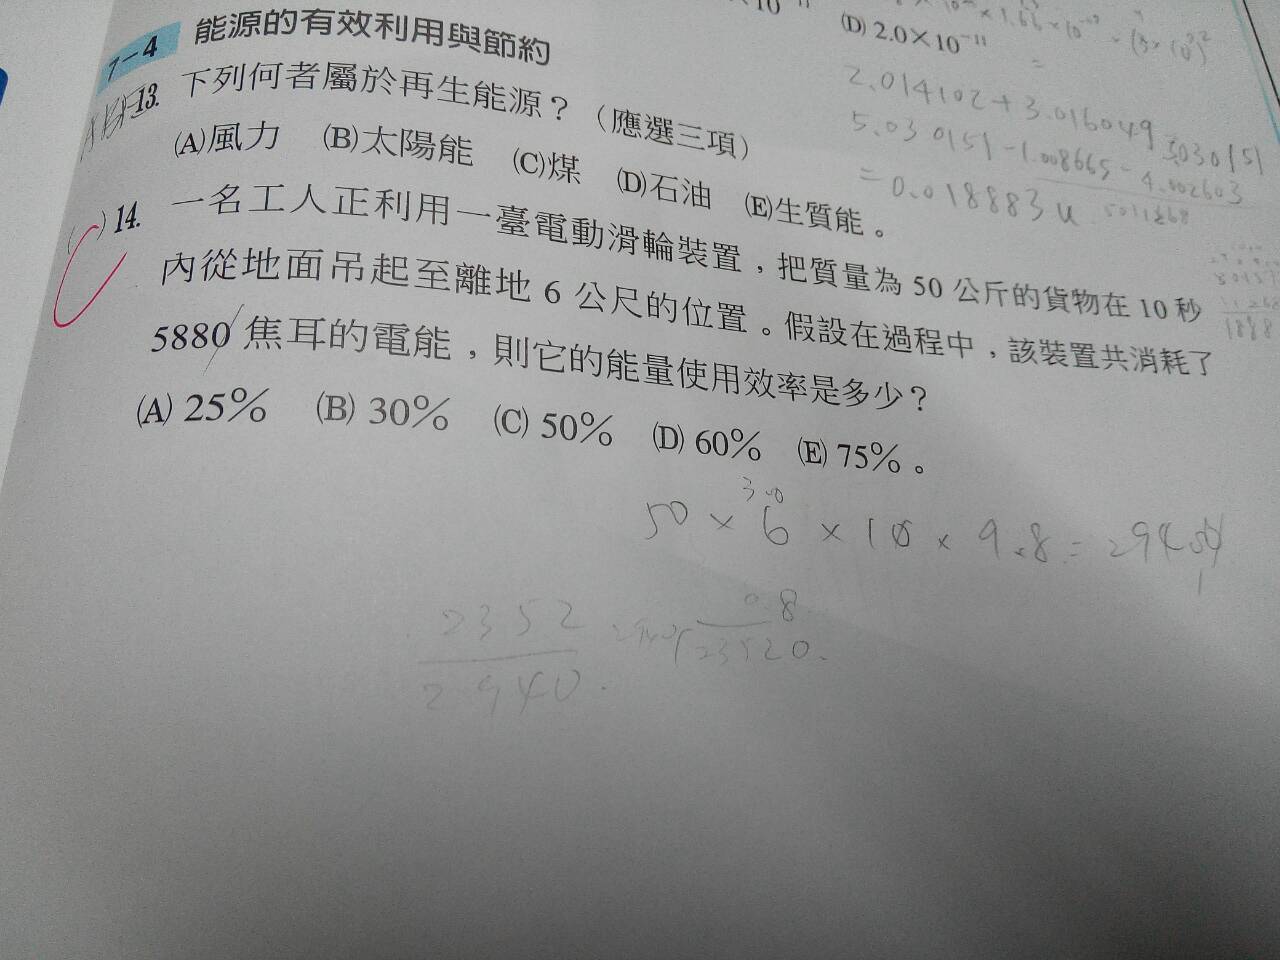 7-4 能源的有效利用與節約
(D) 2.0×10⁻¹¹
2.014102+3.016049
5.030151
5.030151-1.008665-4.002603
=0.018883u
13. 下列何者屬於再生能源?(應選三項)
(A)風力 (B)太陽能 (C)煤 (D)石油 (E)生質能。
( C ) 14. 一名工人正利用一臺電動滑輪裝置,把質量為 50 公斤的貨物在 10 秒
內從地面吊起至離地 6 公尺的位置。假設在過程中,該裝置共消耗了
5880 焦耳的電能,則它的能量使用效率是多少?
(A) 25% (B) 30% (C) 50% (D) 60% (E) 75%。
50×6×10×9.8=
2352
2940
0.8
23520